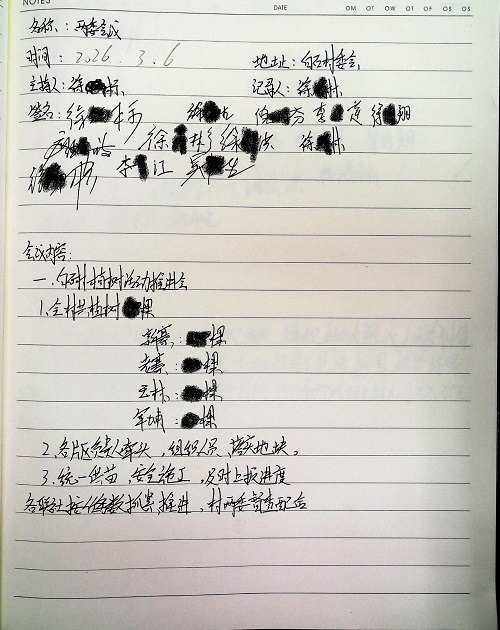 NOTES
DATE OM OT OW OT OF OS OS
名称：两委会议
时间：2026.3.6 地址：村委会
主持人：徐 记录人：徐
签名：徐 徐 李 徐翔
徐 徐 徐
徐 李 江
会议内容：
一.植树活动推进会
1.全村共植树 棵
新寨： 棵
老寨： 棵
王林： 棵
军埔： 棵
2.各片区负责人牵头，组织人员、落实地块。
3.统一供苗，安全施工，及时上报进度
各联社按任务数抓紧推进，村两委督查配合